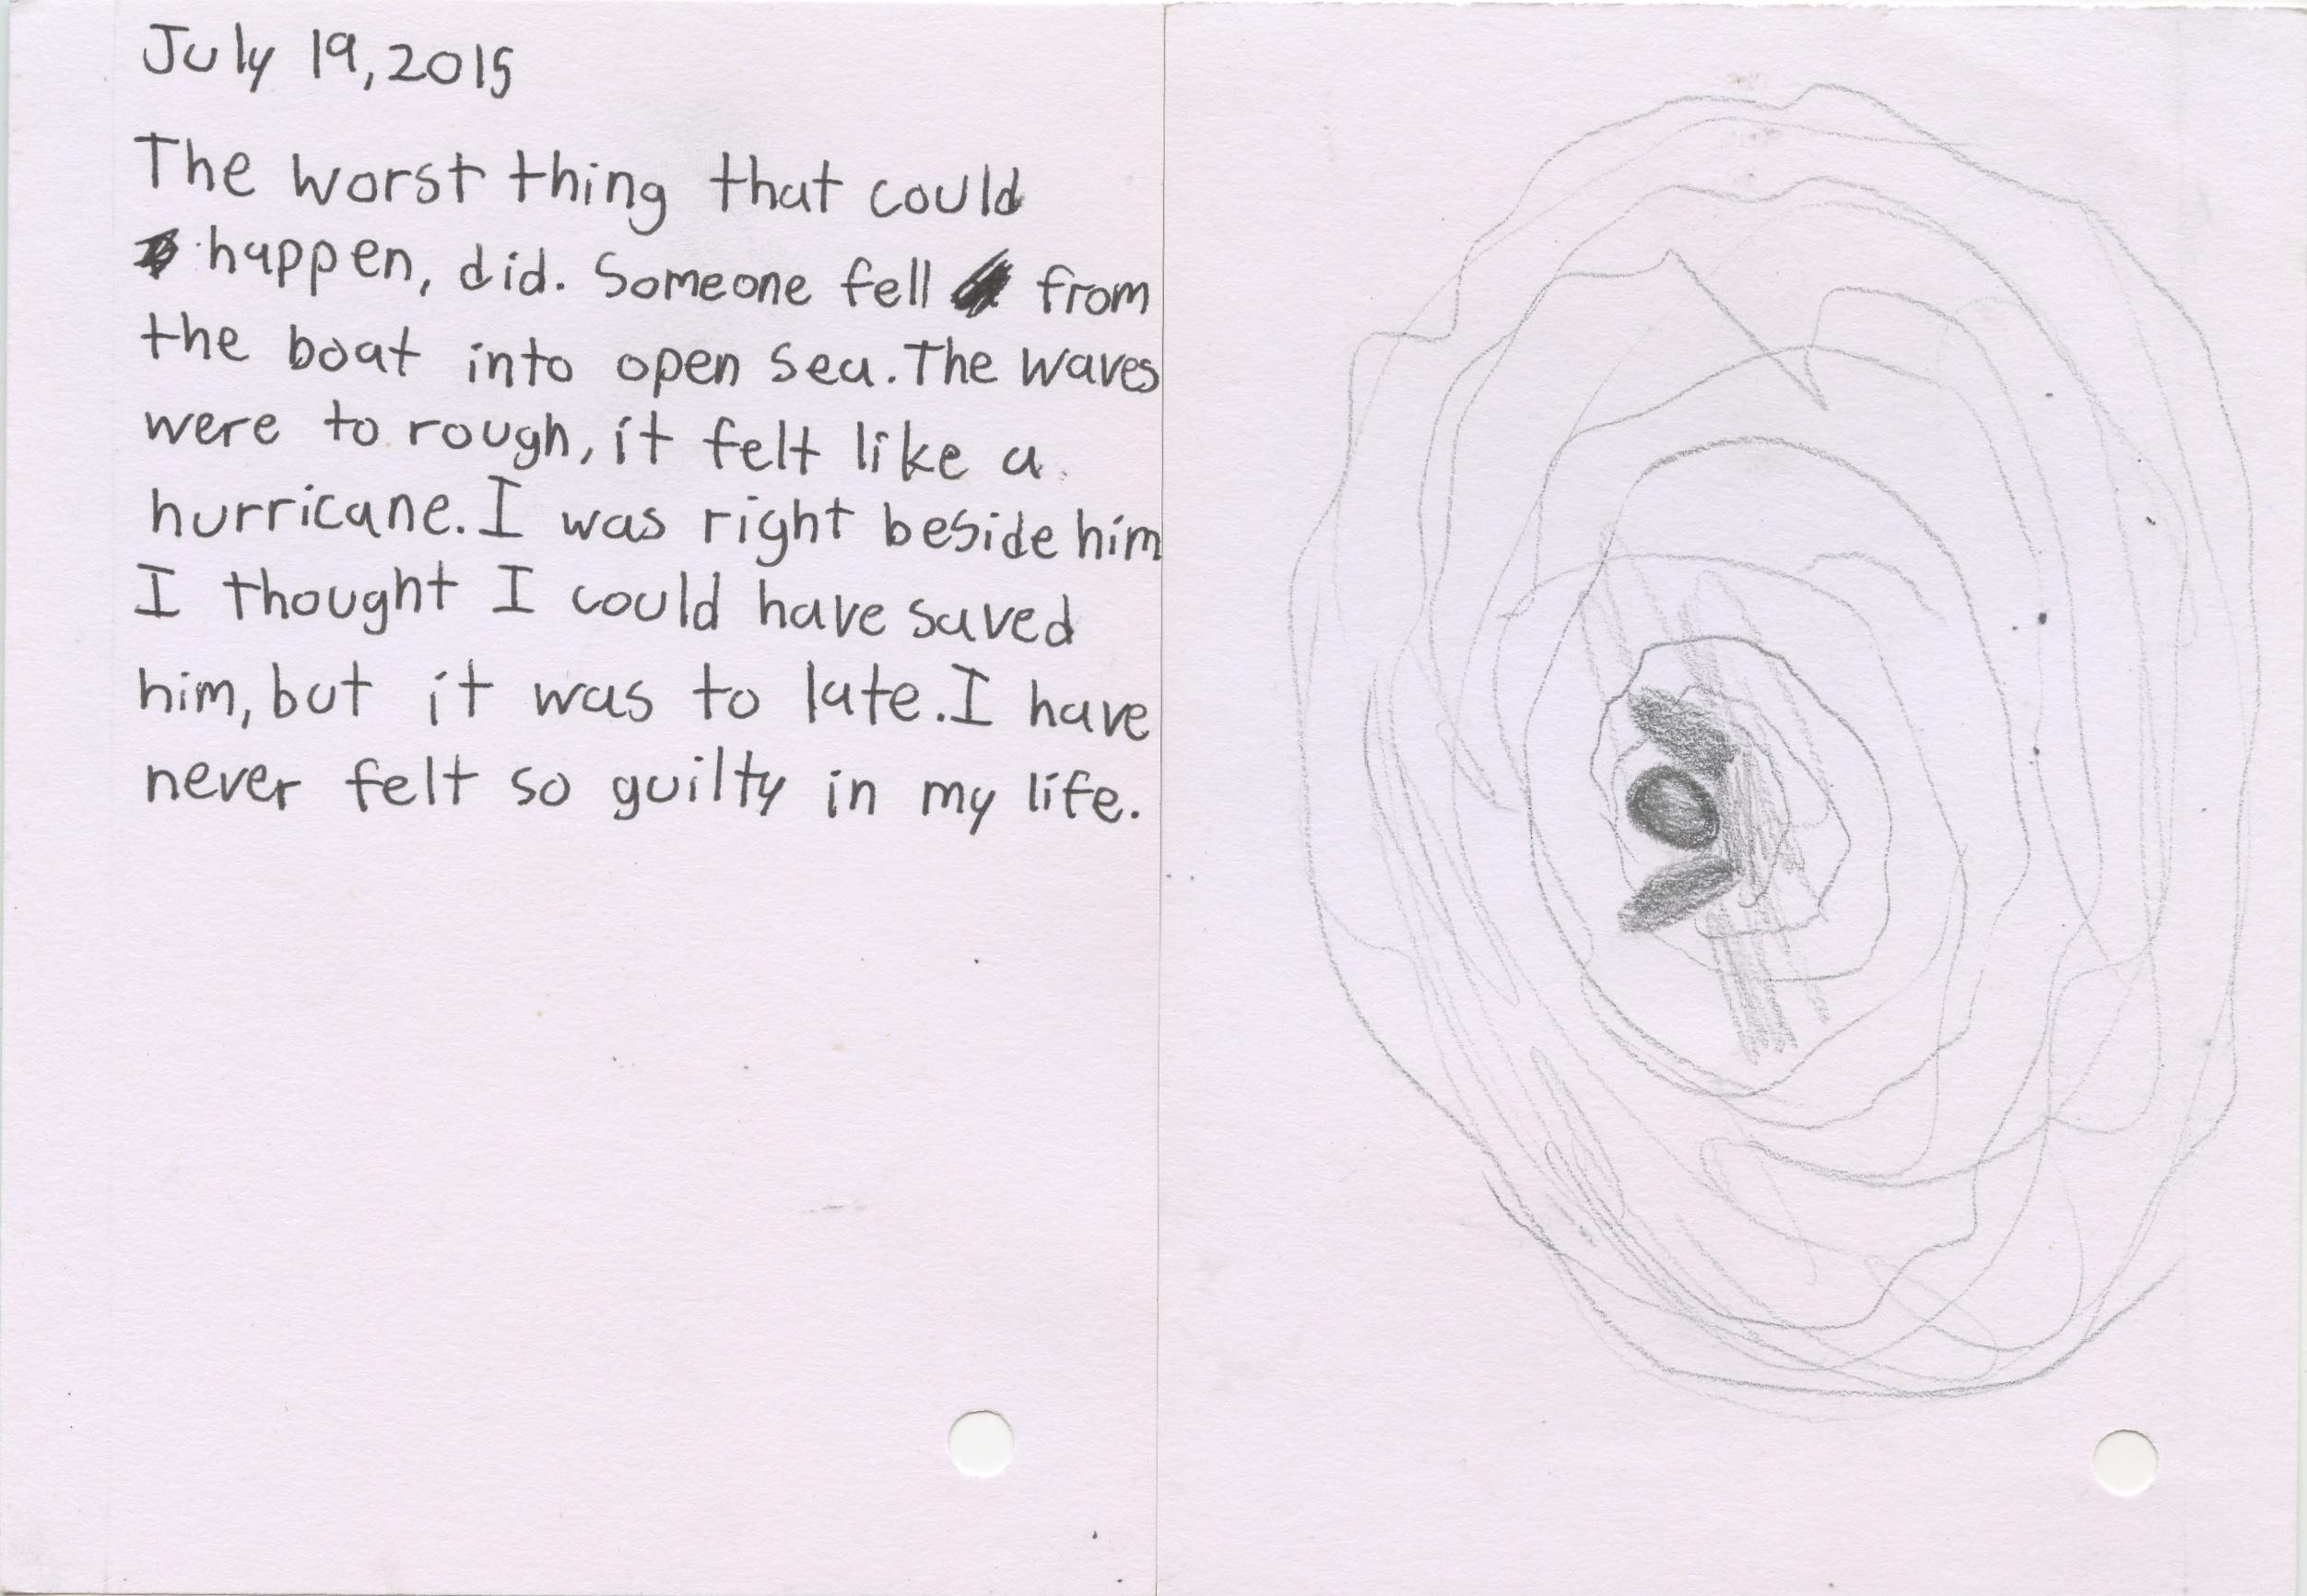 July 19, 2015
The worst thing that could
happen, did. Someone fell from
the boat into open sea. The waves
were to rough, it felt like a
hurricane. I was right beside him
I thought I could have saved
him, but it was to late. I have
never felt so guilty in my life.